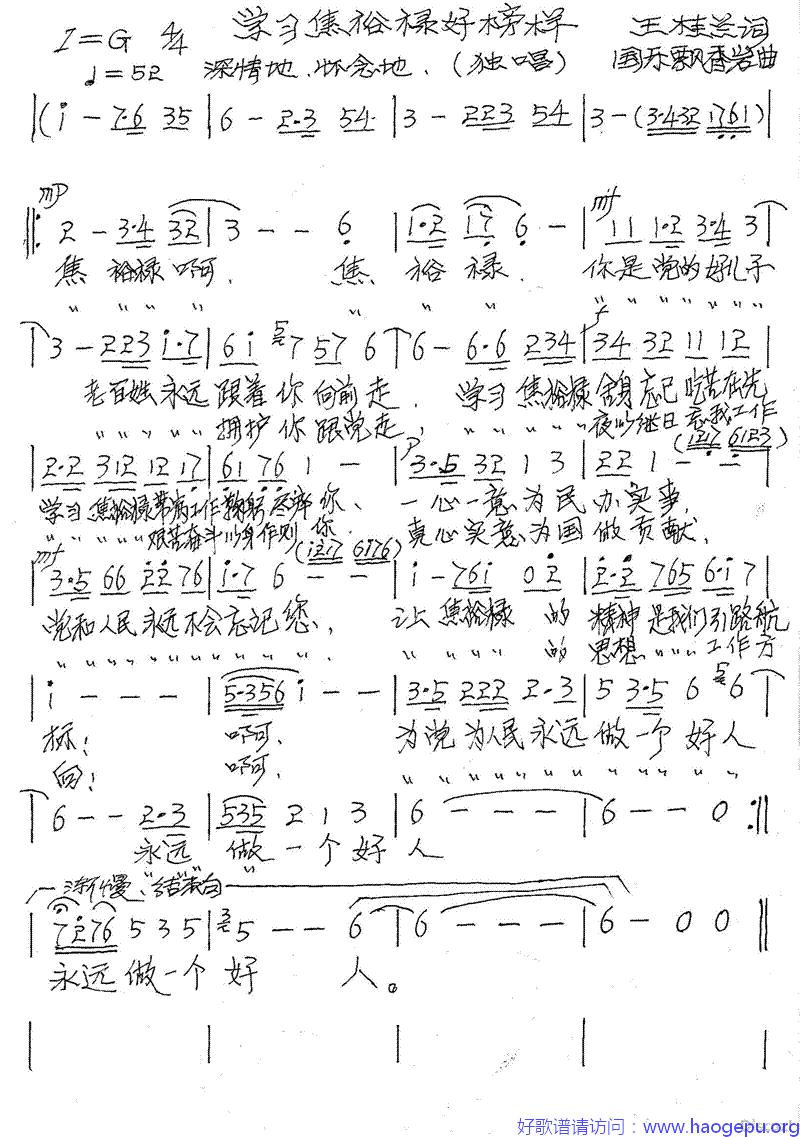 1=G 4/4 学习焦裕禄好榜样 王桂兰词
♩=52 深情地、怀念地、(独唱) 国乐飘香岩曲
|(i - 7·6 35 | 6 - 2·3 54 | 3 - 223 54 | 3 - (3·432 1761)|
mp mf
|: 2 - 3·4 32 | 3 - - 6 | 1·2 17 6 - | 11 1·2 3·4 3 |
焦 裕禄啊, 焦 裕 禄. 你是党的好儿子
" " " " " " " " " " " " " "
f
| 3 - 223 i·7 | 6i 57 57 6 | 6 - 6·6 234 | 34 32 11 12 |
老百姓永远跟着你向前走. 学习焦裕禄舍身忘己吃苦在先
" " " " " 拥护你跟党走, " " " " " 夜以继日忘我工作
(i217 6123)
| 2·2 312 12 17 | 61 76 1 - | 3·5 32 1 3 | 22 1 - - |
p
学习焦裕禄带病工作鞠躬尽瘁你、 一心一意为民办实事.
" " " " " 艰苦奋斗以身作则你 真心实意为国做贡献.
mf (i217 6176)
| 3·5 66 22 76 | i·7 6 - - | i - 76i 02 | 2·2 765 6·i 7 |
党和人民永远不会忘记您, 让焦裕禄的精神是我们引路航
" " " " " " " " " " " " " " " 的思想 " " " 工作方
| i - - - | 5·356 i - - | 3·5 222 2·3 | 5 3·5 6 56 |
标! 啊, 为党为人民永远做一个好人
向! 啊, " " " " " " " " " " " "
| 6 - - 2·3 | 535 2 1 3 | 6 - - - | 6 - - 0 :||
永远做一个好人
渐慢、"结束句"
| 7276 5 3 5 | 35 - - 6 | 6 - - - | 6 - 0 0 ||
永远做一个好 人。
好歌谱请访问：www.haogepu.org